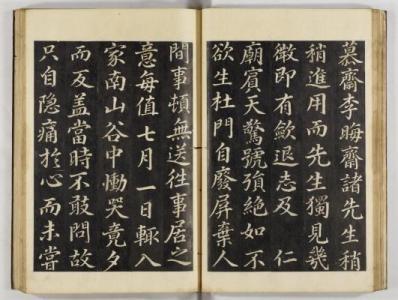 慕齋李晦齋諸先生稍
稍進用而先生獨見幾
微即有歛退志及　仁
廟賓天驚號殞絶如不
欲生杜門自廢屏棄人
間事頓無送徃事居之
意每值七月一日輒入
家南山谷中慟哭竟夕
而反盖當時不敢問故
只自隐痛於心而未嘗